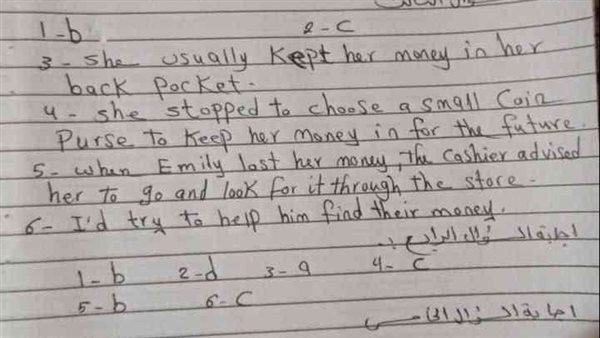 1-b 2-c
3 - she usually Kept her money in her
back pocket.
4 - she stopped to choose a small Coin
Purse to Keep her money in for the future.
5 - when Emily lost her money, The Cashier advised
her to go and look for it through the store.
6 - I'd try to help him find their money.
اجابة السؤال الرابع :
1-b 2-d 3-a 4-c
5-b 6-c
اجابة السؤال الخامس